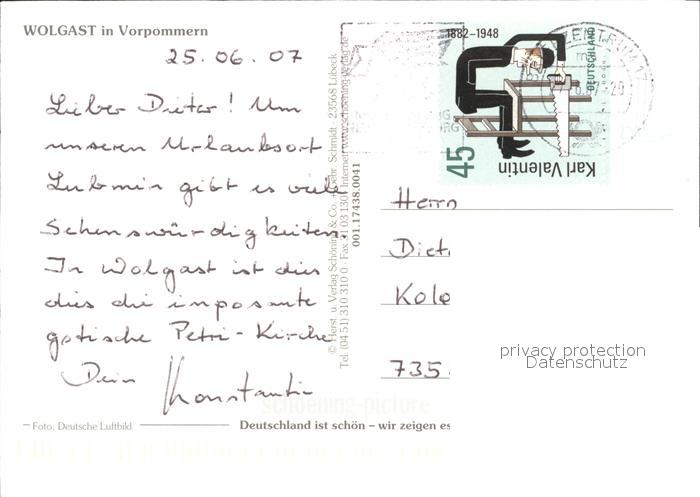 WOLGAST in Vorpommern
25.06.07
Lieber Dieter! Um
unseren Urlaubsort
Lubmin gibt es viele
Sehenswürdigkeiten.
In Wolgast ist dies
dies die imposante
gotische Petri-Kirche
Dein Konstantin
Foto: Deutsche Luftbild
Deutschland ist schön – wir zeigen es
© Herst. u. Verlag Schöning & Co. + Gebr. Schmidt · 23568 Lübeck
Tel. (04 51) 310 310 0 · Fax 31 03 130 · Internet: www.schoening-verlag.de
001.17438.0041
schoening-picture
1882–1948
DEUTSCHLAND
45
Karl Valentin
Herrn
Diet
Kolo
735
privacy protection
Datenschutz